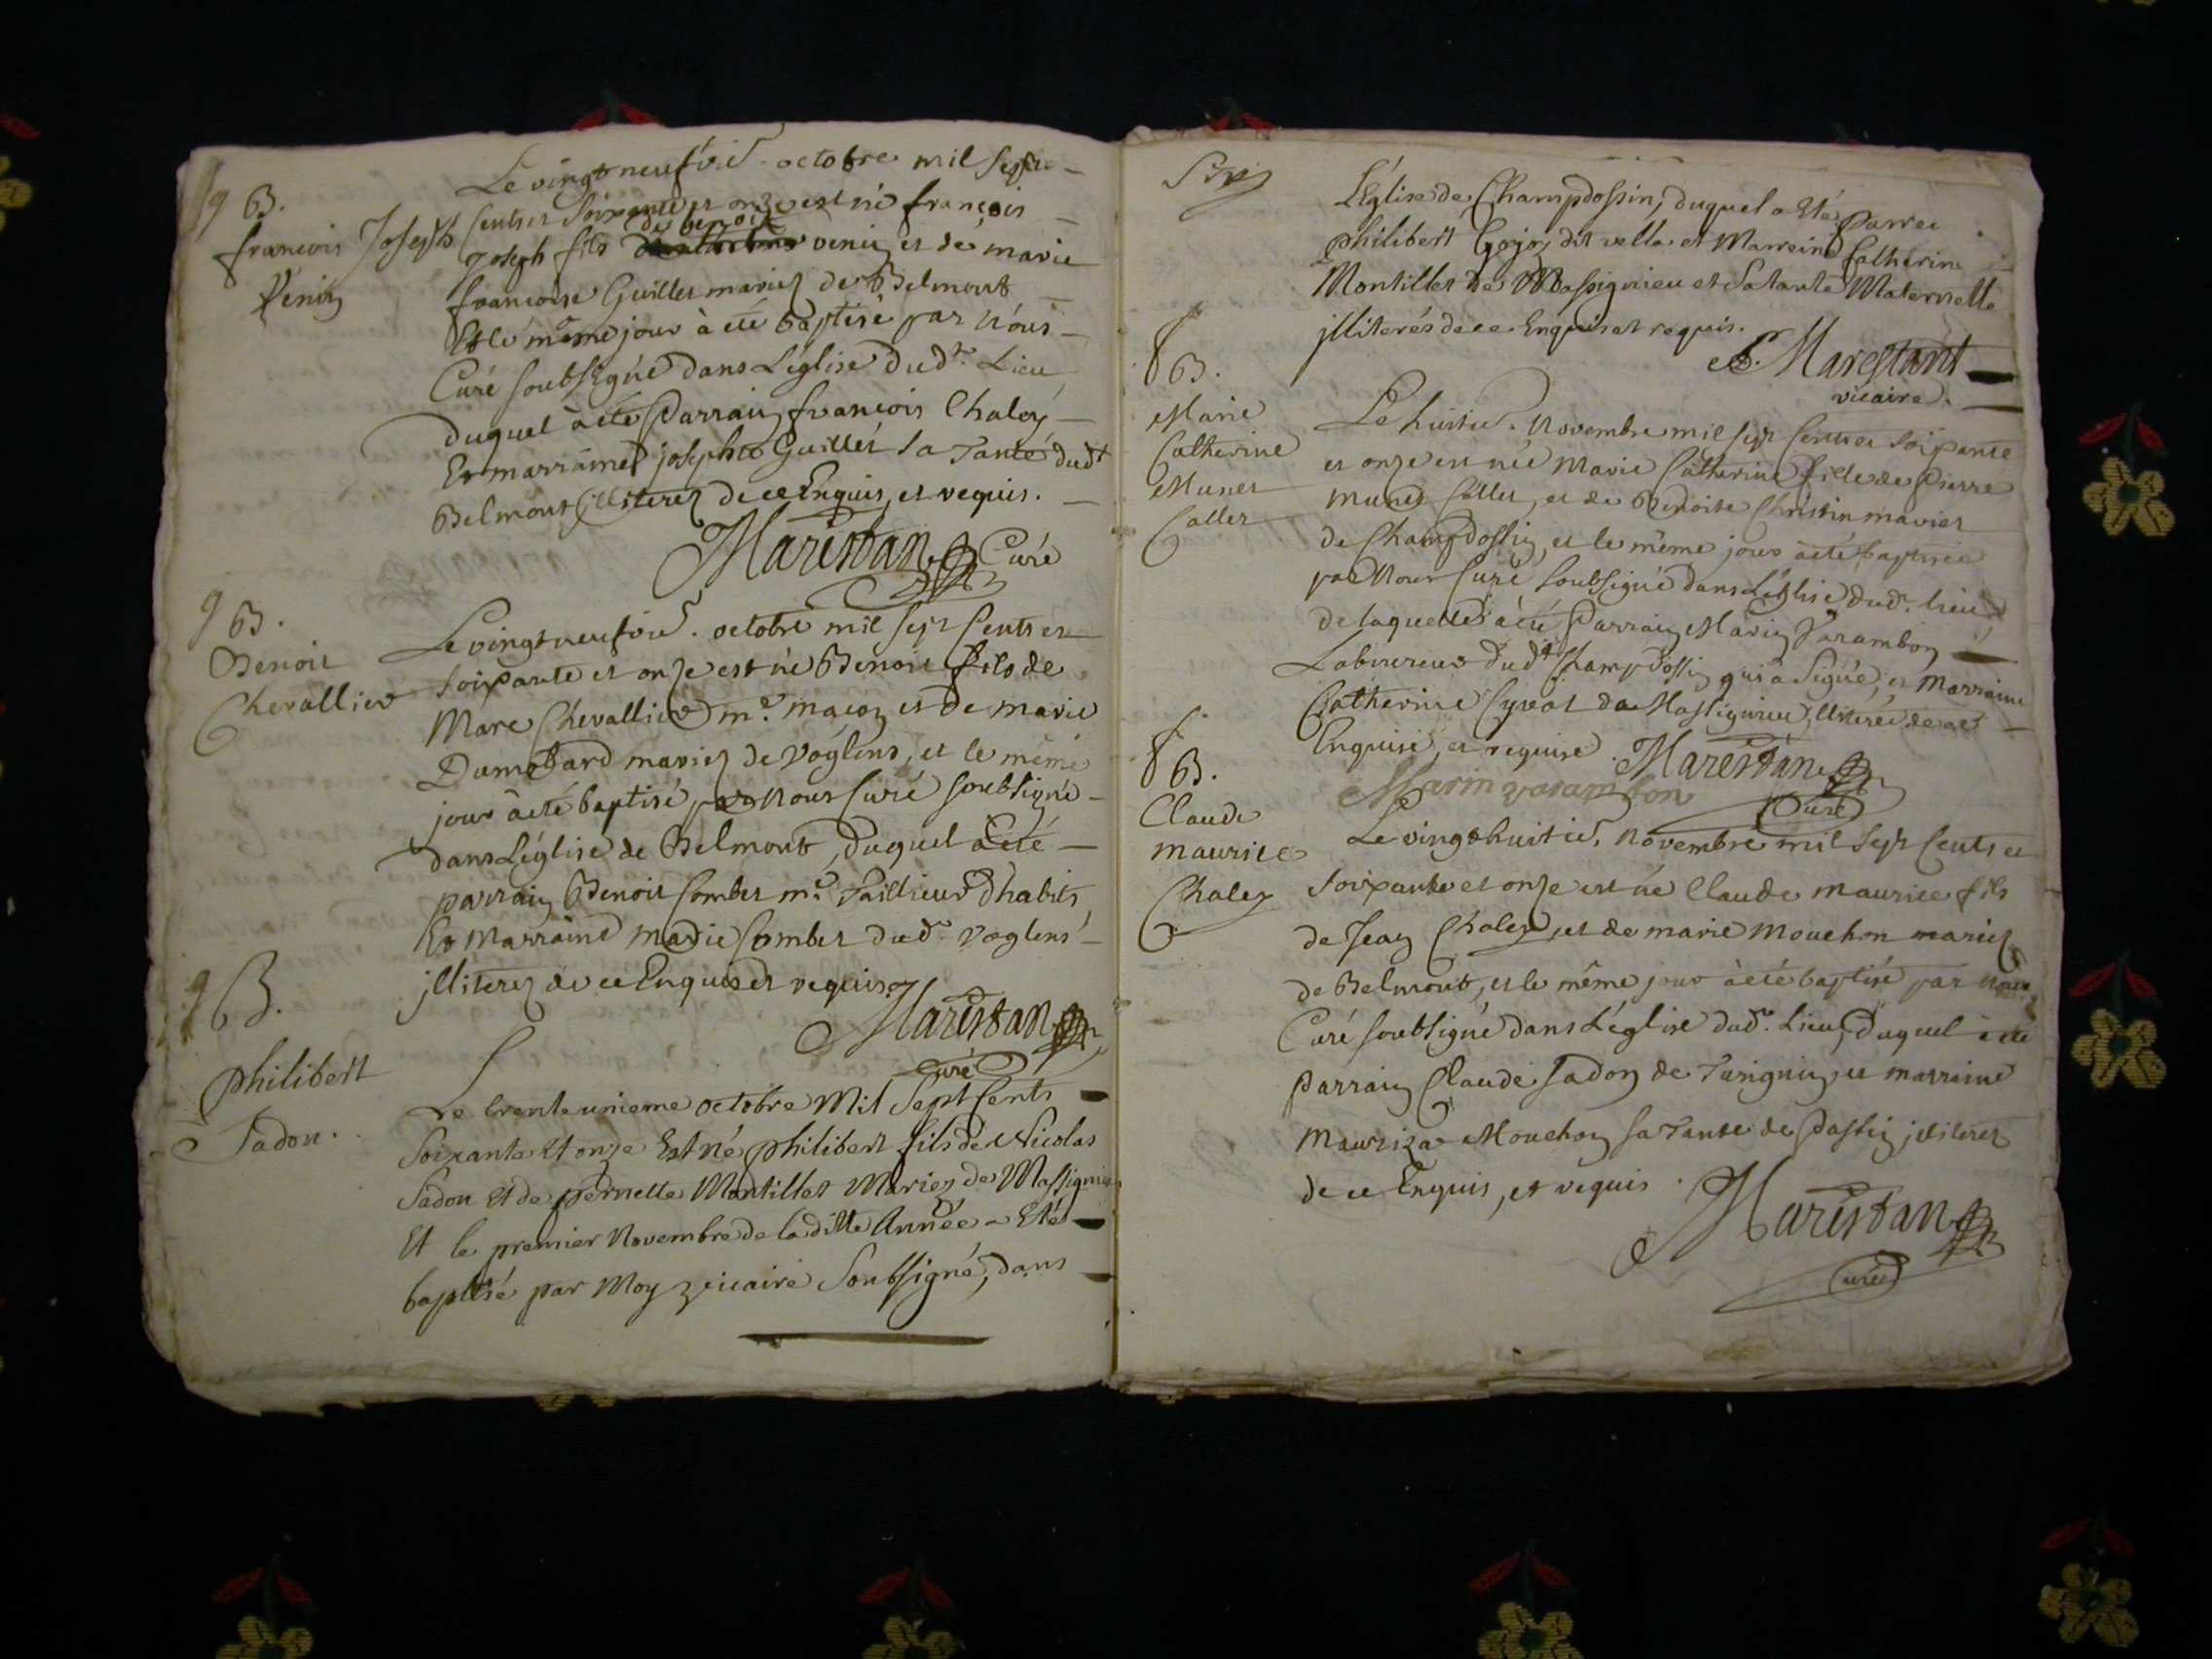 9 B.
francois Joseph
Venin
Le vingt neufvie. octobre mil sept
Cents et Soixante et onze est né françois
joseph fils de benoit venin et de marie
francoise Guillet mariez de Belmont
Et le même jour à été baptisé par Nous
Curé soubsigné dans L'église dudt. Lieu
duquel à été Parrain françois Chaley
Et marraine josephte Guillet sa Tante dudt
Belmont illiterez de ce Enquis, et requis.
Marestan Curé
9 B.
Benoit
Chevallier
Le vingt neufvie. octobre mil sept Cents et
soixante et onze est né Benoit fils de
Marc Chevallier me. maçon et de marie
Dumollard mariez de Voglens, et le même
jour à été baptisé par Nous Curé soubsigné
dans L'église de Belmont, duquel à été
parrain Benoit Combet me. Tailleur d'habits
Et Marraine marie Combet dudt. Voglens
jlliterez de ce Enquis et requis.
Marestan
Curé
9 B.
philibert
Sadon.
Le trente unieme octobre Mil Sept Cents
Soixante Et onze Est né philibert fils de Nicolas
Sadon Et de pernette Montillet Mariez de Massignieu
Et le premier Novembre de la ditte Année a Eté
baptisé par Moy vicaire Soubsigné, dans
L'Eglise de Champdossin, duquel a Eté Parrei
philibert Gojon dit vella et Marreine Catherine
Montillet de Massignieu et Sa tante Maternelle
jlliterés de ce Enquis et requis.
Marestant
vicaire.
8 B.
Marie
Catherine
Munet
Collet
Le huitie. Novembre mil sept Cents et soixante
et onze est née Marie Catherine fille de Pierre
Munet Collet, et de Benoite Christin mariez
de Champdossin, et le même jour à été baptisée
par Nous Curé soubsigné dans L'église dudt. lieu
de laquelle à été Parrain Marin Varambon
Laboureur dudt Champdossin qui a signé, et marraine
Catherine Cyvat de Massignieu, illiterée de ce
Enquise, et requise. Marestan
Marin varambon Curé
8 B.
Claude
maurice
Chaley
Le vingt huitie. Novembre mil sept Cents et
soixante et onze est né Claude maurice fils
de Jean Chaley, et de marie Mouchon mariez
de Belmont, et le même jour à été baptisé par Nous
Curé soubsigné dans L'église dudt. Lieu, duquel à été
Parrain Claude Sadon de Turignin, et marraine
Mauriza Mouchon sa Tante de Passin jlliterez
de ce Enquis, et requis.
Marestan
Curé